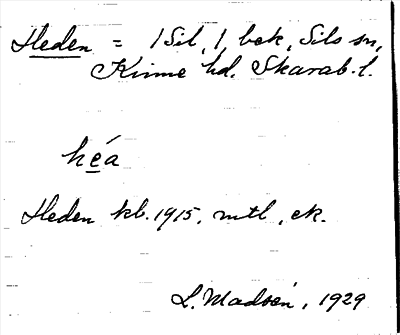 Heden = 1 Sil, 1, bek, Sils sn,
Kinne hd. Skarab. l.
héa
Heden kb. 1915, mtl, ek.
L. Madsén, 1929